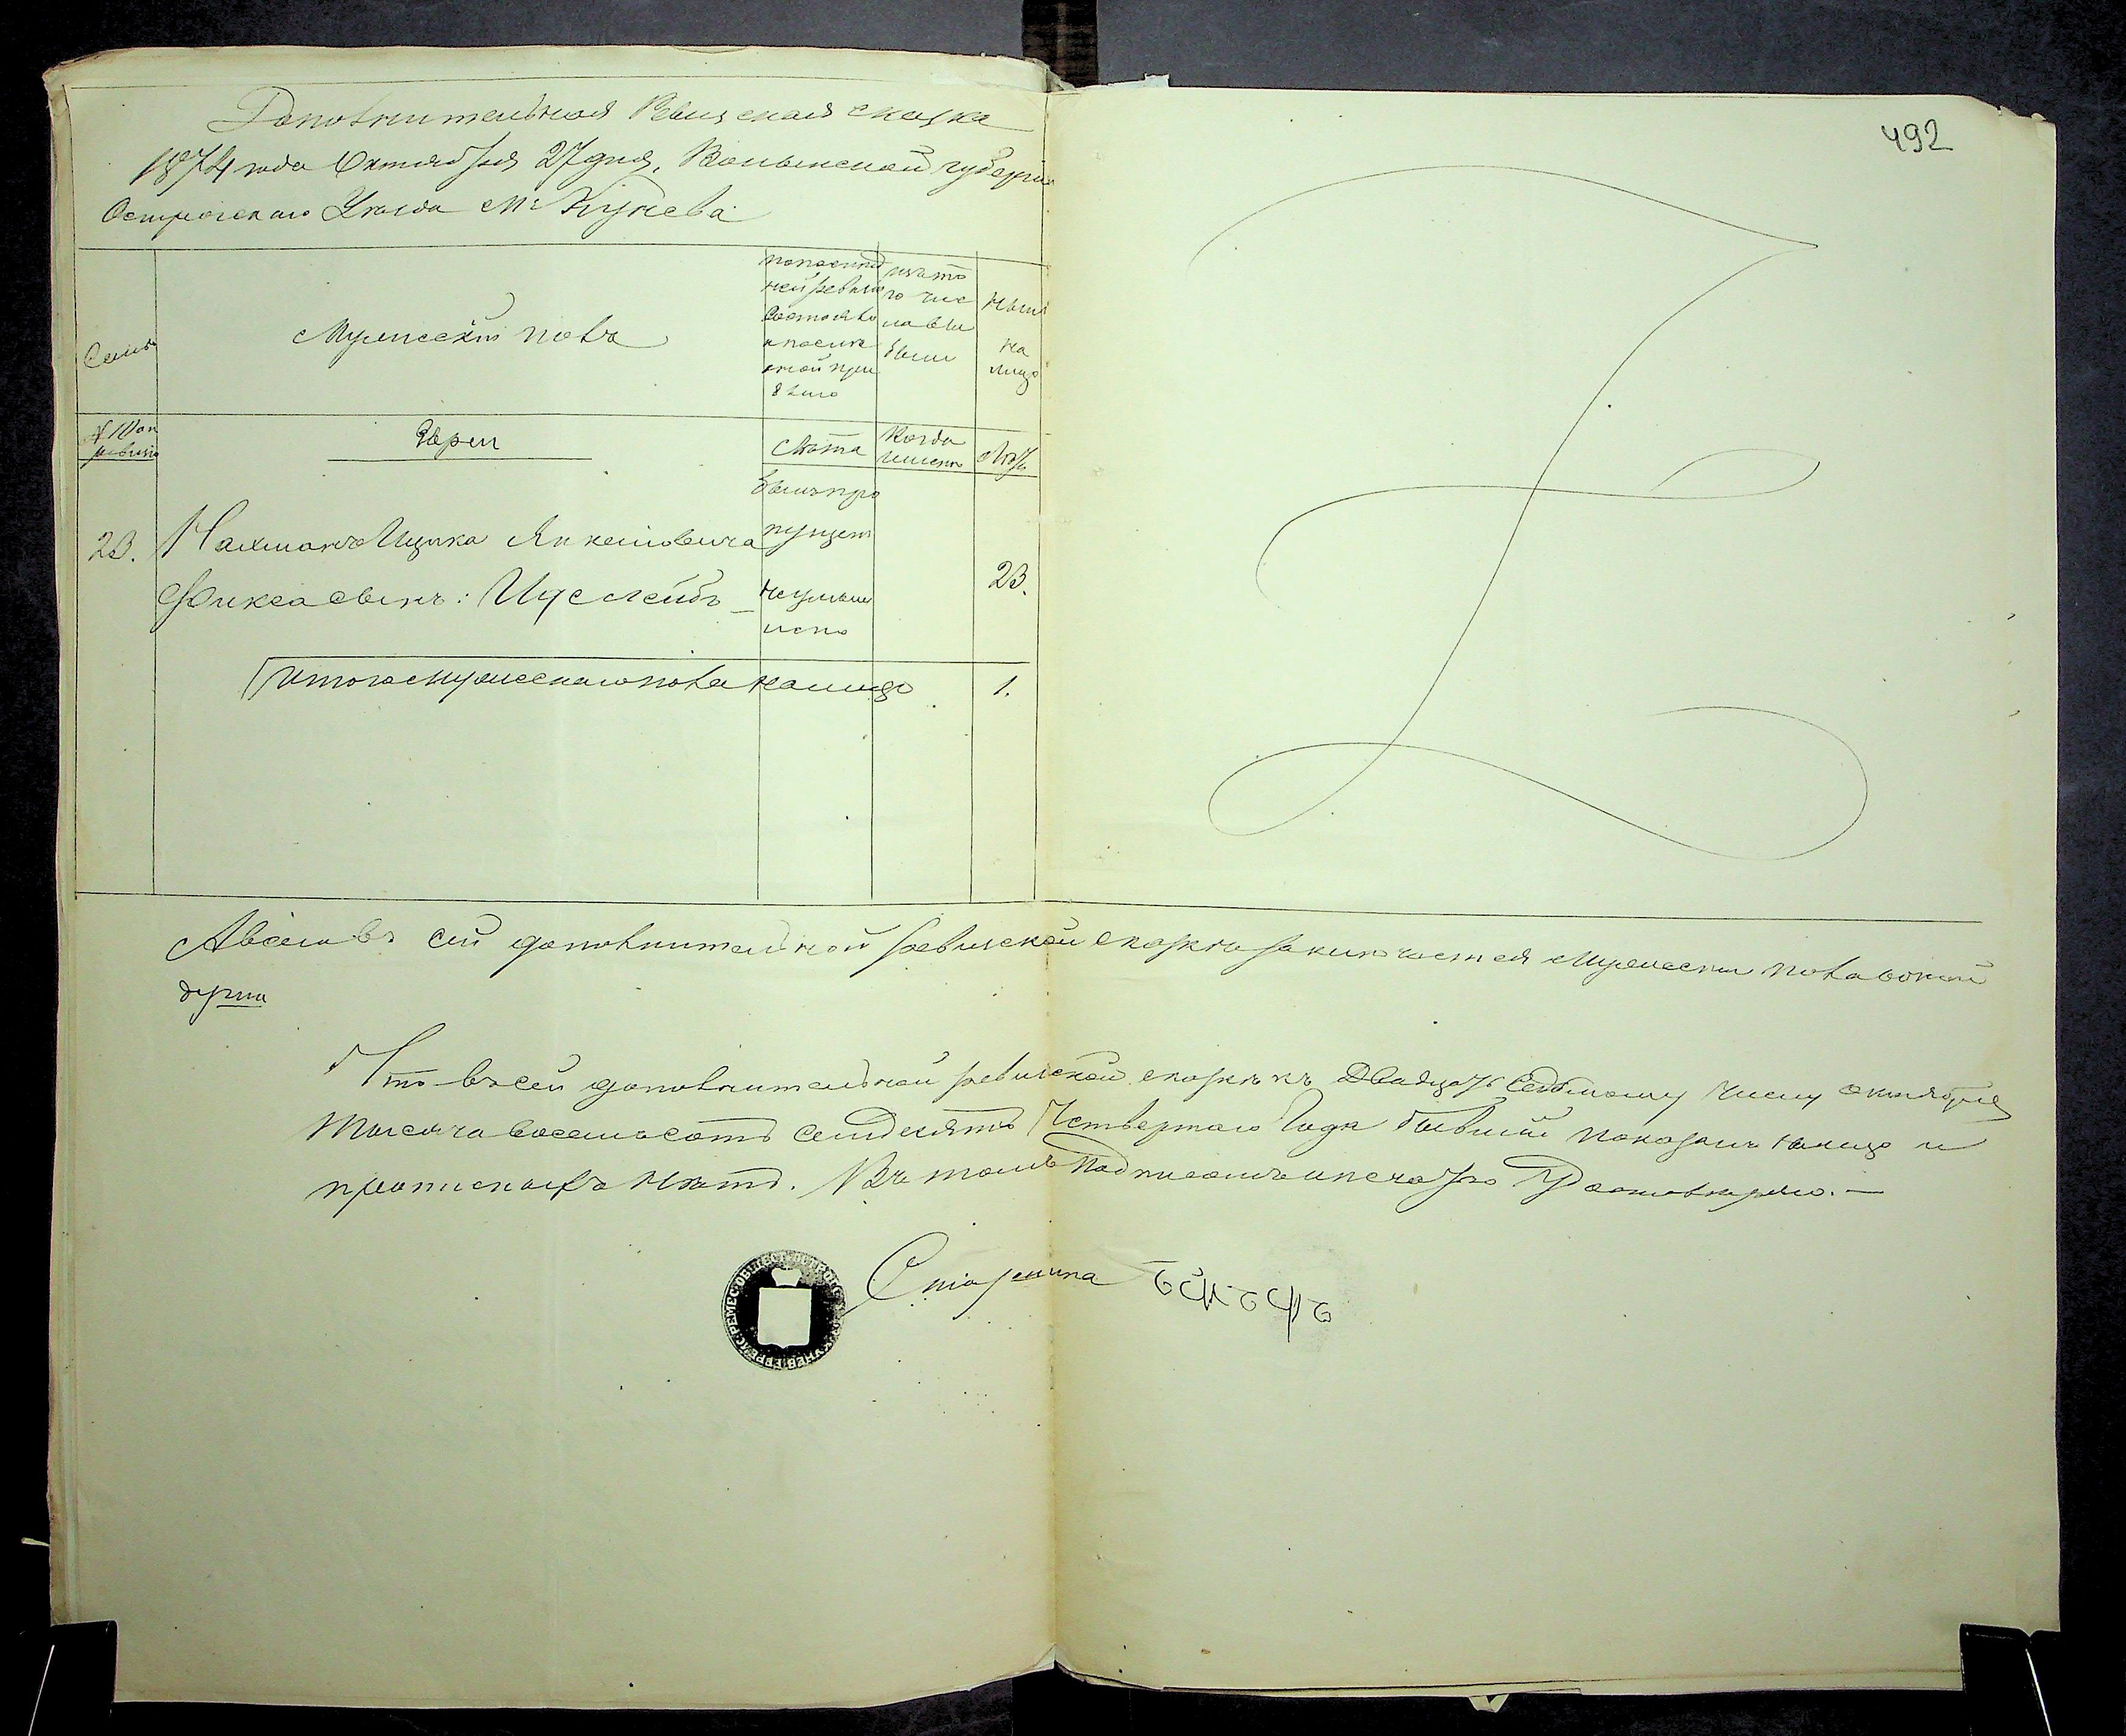 492
Дополнительная Ревизская сказка
1874 года Октября 27 дня, Волынской губерніи
Острожскаго Уѣзда М: Кунева
Семьи
Мужескій полъ
по послѣд
ней ревизіи
состояло
и послѣ
оной при
было
изъ то
го чис
ла вы
было
Нынѣ
на
лицо
Евреи
Лѣта
Когда
именно
Лѣтъ
23.
Нахманъ Ицька Янкелiовича
Фикса сынъ: Иуслейбъ
былъ про
пущен
неумыш
ленно
23.
Итого мужескаго пола налицо
1.
А всего въ сей дополнительной ревизской сказкѣ заключается мужеска пола одной
души
Что въ сей дополнительной ревизской сказкѣ къ Двадцать Седьмому числу октября
тысяча восемьсотъ семдесятъ Четвертаго Года бывшій показанъ налицо и
прописныхъ нѣтъ. Въ томъ подписомъ и печатью Удостовѣряю.—
Старшина